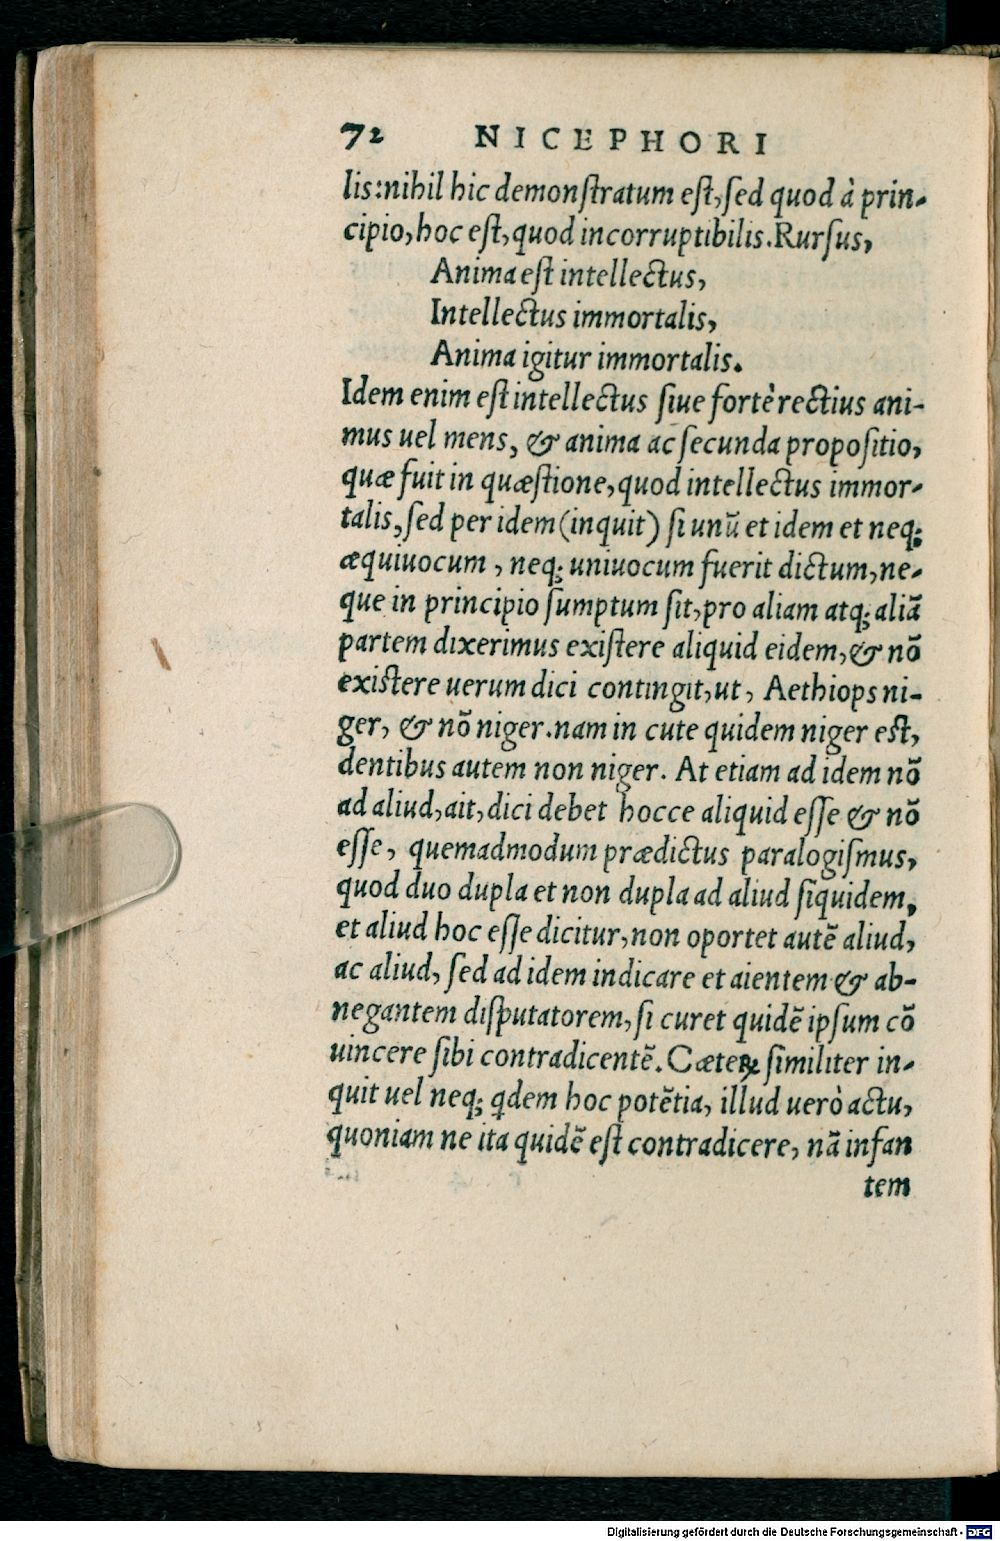 72 NICEPHORI
lis:nihil hic demonſtratum eſt,ſed quod à prin-
cipio,hoc eſt,quod incorruptibilis.Rurſus,
Anima eſt intellectus,
Intellectus immortalis,
Anima igitur immortalis.
Idem enim eſt intellectus ſiue fortè rectius ani-
mus uel mens, & anima ac ſecunda propoſitio,
quæ fuit in quæſtione,quod intellectus immor-
talis,ſed per idem(inquit) ſi unū et idem et neq;
æquiuocum, neq; uniuocum fuerit dictum,ne-
que in principio ſumptum ſit,pro aliam atq; aliā
partem dixerimus exiſtere aliquid eidem,& nō
existere uerum dici contingit,ut, Aethiops ni-
ger, & nō niger.nam in cute quidem niger eſt,
dentibus autem non niger. At etiam ad idem nō
ad aliud,ait,dici debet hocce aliquid eſſe & nō
eſſe, quemadmodum prædictus paralogiſmus,
quod duo dupla et non dupla ad aliud ſiquidem,
et aliud hoc eſſe dicitur,non oportet autē aliud,
ac aliud, ſed ad idem indicare et aientem & ab-
negantem diſputatorem,ſi curet quidē ipſum cō
uincere ſibi contradicentē. Cæteꝝ ſimiliter in-
quit uel neq; qdem hoc potētia, illud uerò actu,
quoniam ne ita quidē eſt contradicere, nā infan
tem
Digitalisierung gefördert durch die Deutsche Forschungsgemeinschaft - DFG